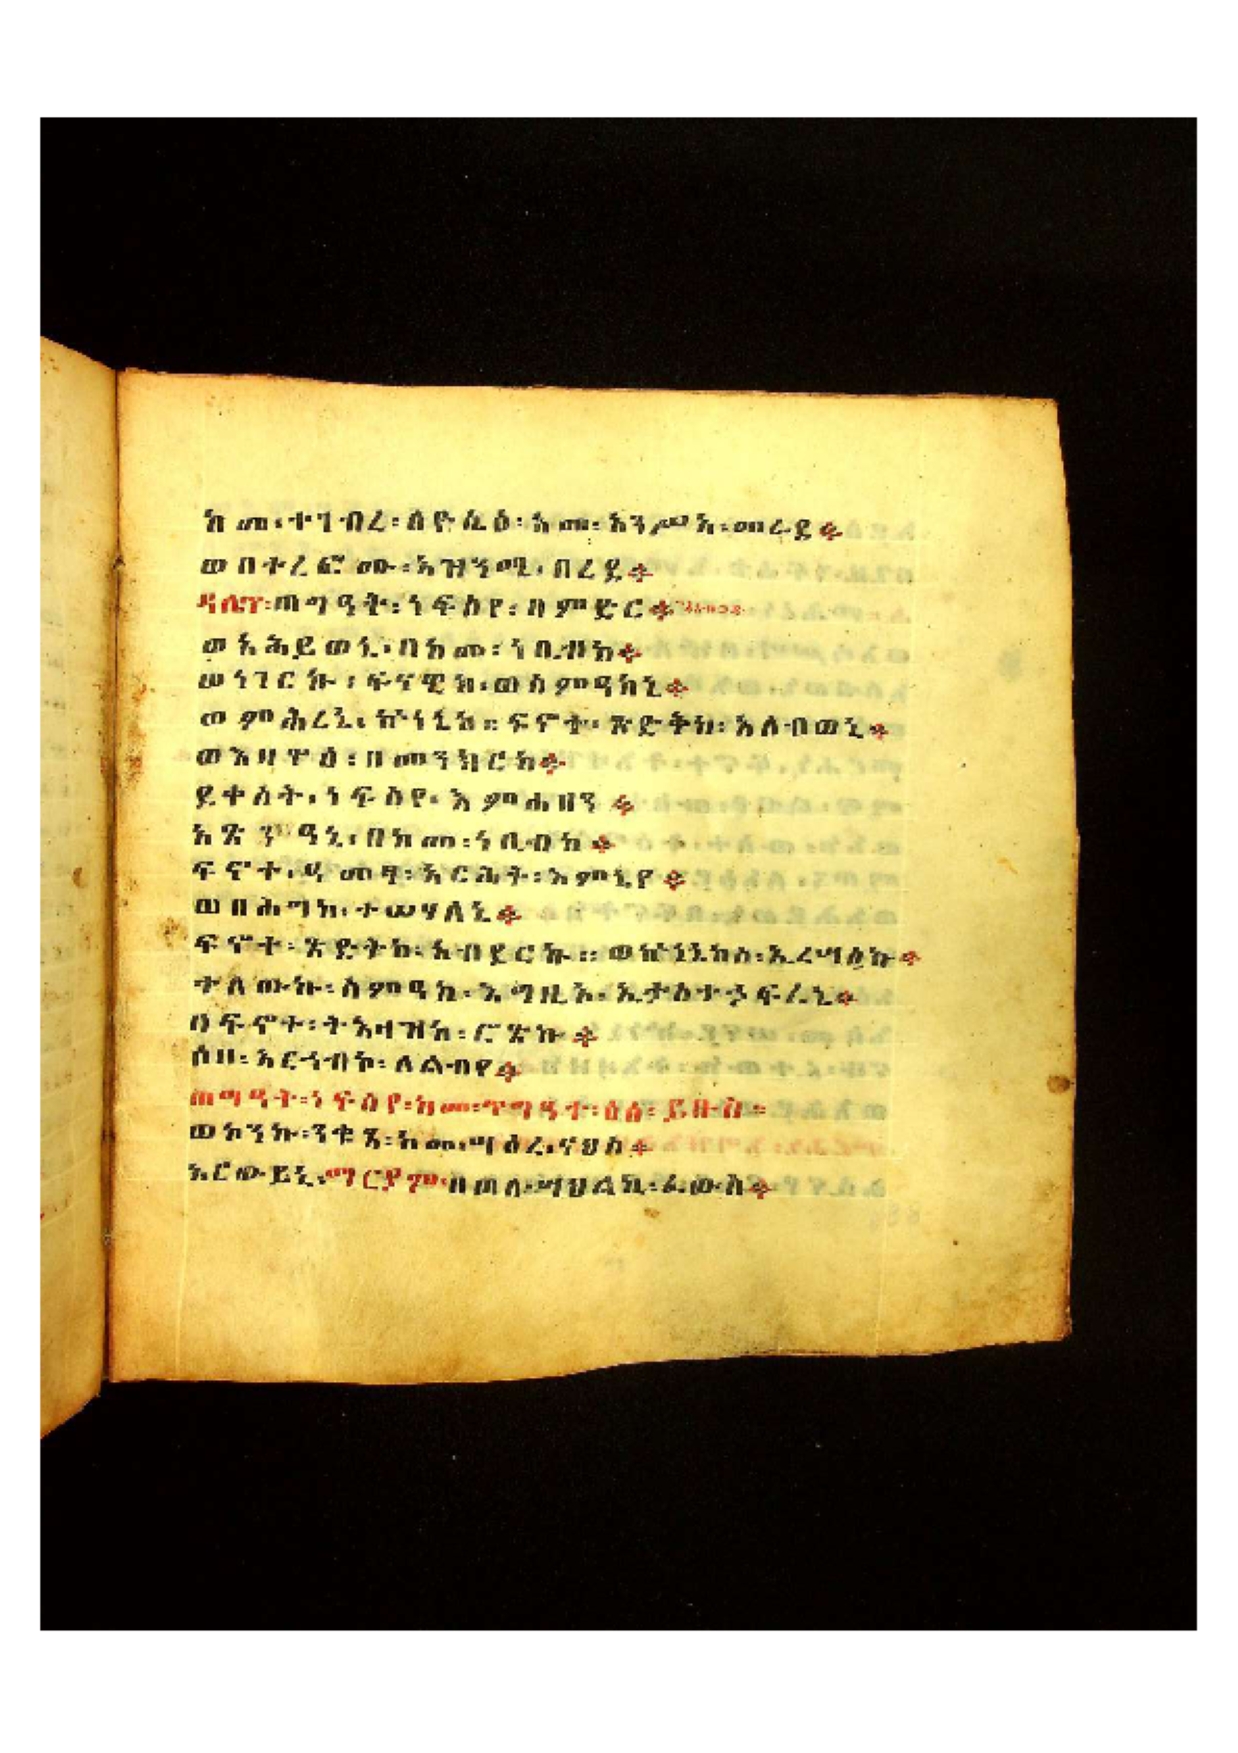 ከመ፡ ተገብረ፡ ለዮሴፍ፡ አመ፡ አንሥአ፡ መራደ፨
ወበተረፎሙ፡ አዝንሚ፡ በረደ፨
ዳሌጥ፡ ጠግዓት፡ ነፍስየ፡ በምድር፨
ወአሕይወኒ፡ በከመ፡ ነቢብከ፨
ወነገርኩ፡ ፍናዊከ፡ ወሰምዓከኒ፨
ወምሕረኒ፡ ኵነኔከ። ፍኖተ፡ ጽድቅከ፡ አለብወኒ፨
ወእዛዋዕ፡ በመንክርከ፨
ደቀሰት፡ ነፍስየ፡ እምሐዘን፨
አጽንዓኒ፡ በከመ፡ ነቢብከ፨
ፍኖተ፡ ዓመፃ፡ አርሕቅ፡ እምኔየ፨
ወበሕግከ፡ ተሠሃለኒ፨
ፍኖተ፡ ጽድቅከ፡ አብደርኩ። ወኵነኔከሰ፡ ኢረሣዕኩ፨
ተለውኩ፡ ስምዓከ፡ እግዚኦ፡ ኢታስተኃፍረኒ፨
በፍኖተ፡ ትእዛዝከ፡ ሮጽኩ፨
ሶበ፡ አርኀብኮ፡ ለልብየ፨
ጠግዓት፡ ነፍስየ፡ ከመ፡ ጥግዓተ፡ ዕፅ፡ ይዘብስ።
ወከንኩ፡ ንቁኝ፡ ከመ፡ ሣዕረ፡ ናህስ፨
አርውይኒ፡ ማርያም፡ በጠለ፡ ሣህልኪ፡ ፈውስ፨